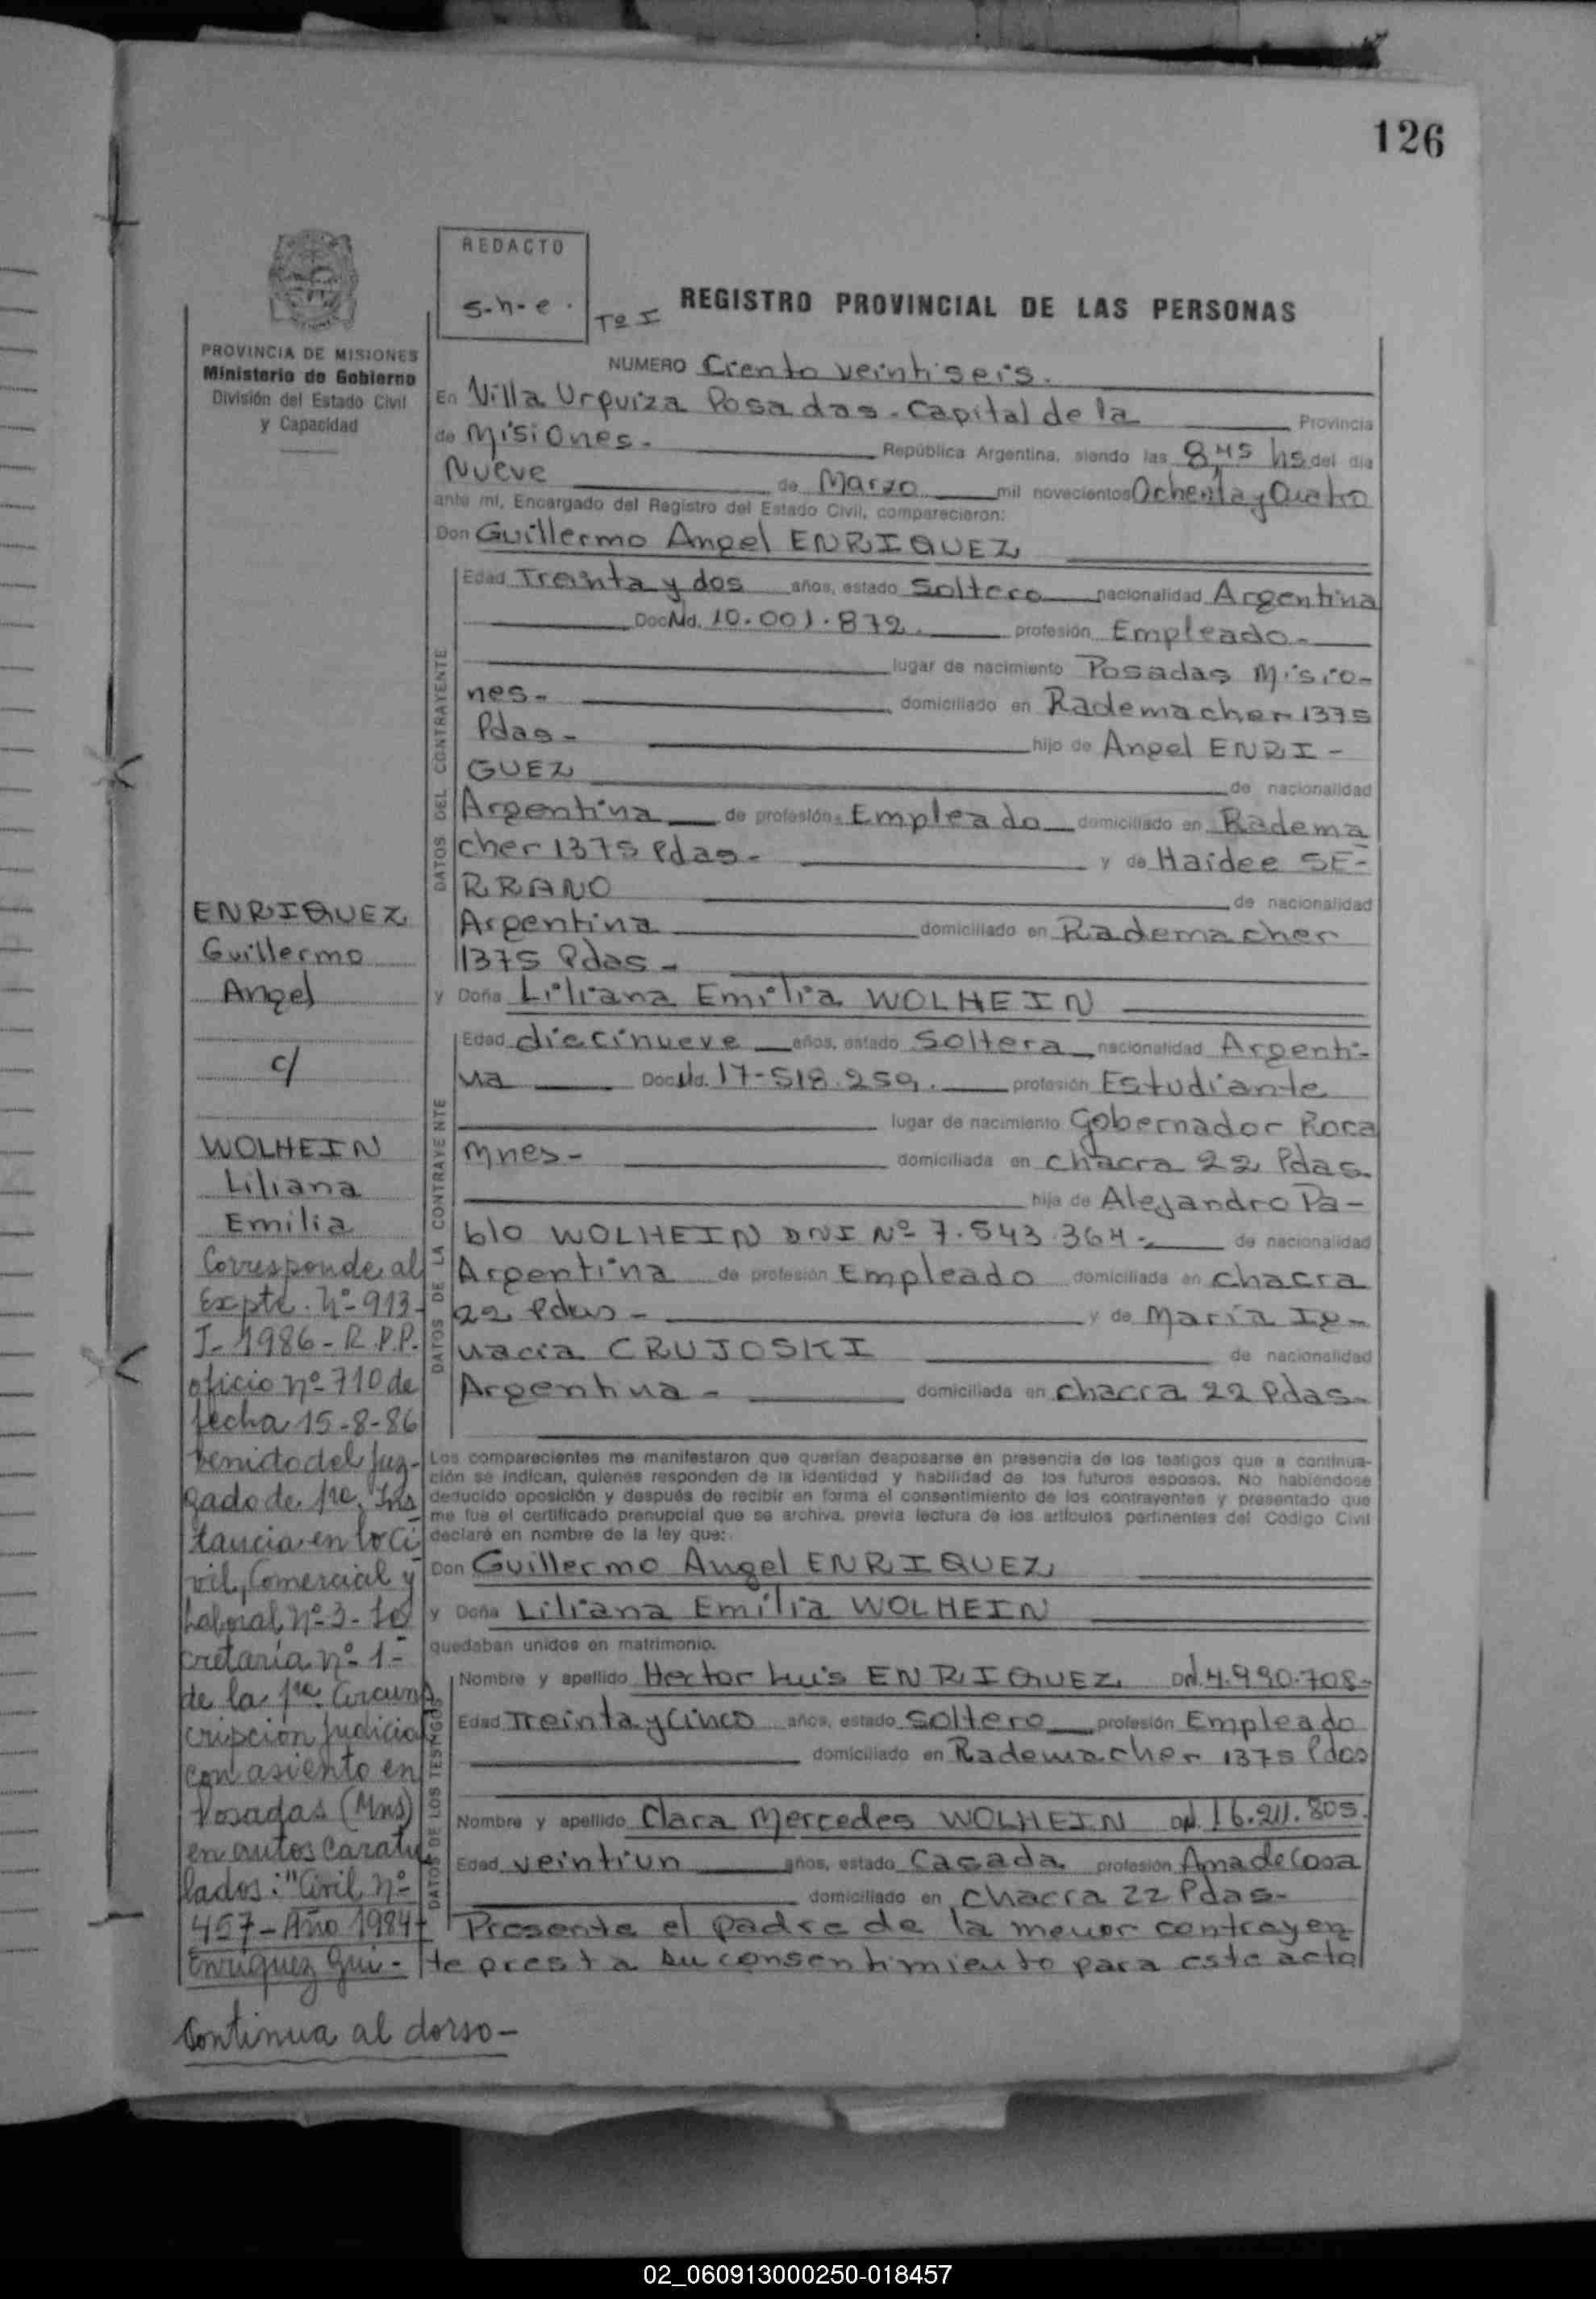 126
REDACTO
s-h-e.
Tº I
REGISTRO PROVINCIAL DE LAS PERSONAS
PROVINCIA DE MISIONES
Ministerio de Gobierno
División del Estado Civil
y Capacidad
NUMERO Ciento veintiseis.
En Villa Urquiza Posadas. Capital de la Provincia
de Misiones. República Argentina, siendo las 8,45 hs del día
Nueve de Marzo mil novecientos Ochenta y Cuatro
ante mí, Encargado del Registro del Estado Civil, comparecieron:
Don Guillermo Angel ENRIQUEZ
DATOS DEL CONTRAYENTE
Edad Treinta y dos años, estado Soltero nacionalidad Argentina
Doc.Nd. 10.001.872. profesión Empleado-
lugar de nacimiento Posadas Misio-
nes- domiciliado en Rademacher 1375
Pdas- hijo de Angel ENRI-
GUEZ de nacionalidad
Argentina de profesión Empleado domiciliado en Radema
cher 1375 Pdas- y de Haidee SE-
RRANO de nacionalidad
Argentina domiciliado en Rademacher
1375 Pdas-
y Doña Liliana Emilia WOLHEIN
DATOS DE LA CONTRAYENTE
Edad diecinueve años, estado Soltera nacionalidad Argenti-
na Doc.Nd. 17-518.259. profesión Estudiante
lugar de nacimiento Gobernador Roca
Mnes- domiciliada en chacra 22 Pdas.
hija de Alejandro Pa-
blo WOLHEIN DNI Nº 7.543.364- de nacionalidad
Argentina de profesión Empleado domiciliada en chacra
22 Pdas- y de María Ig-
nacia CRUJOSKI de nacionalidad
Argentina- domiciliada en chacra 22 Pdas-
Los comparecientes me manifestaron que querían desposarse en presencia de los testigos que a continua-
ción se indican, quienes responden de la identidad y habilidad de los futuros esposos. No habiéndose
deducido oposición y después de recibir en forma el consentimiento de los contrayentes y presentado que
me fue el certificado prenupcial que se archiva, previa lectura de los artículos pertinentes del Código Civil
declaré en nombre de la ley que:
Don Guillermo Angel ENRIQUEZ
y Doña Liliana Emilia WOLHEIN
quedaban unidos en matrimonio.
DATOS DE LOS TESTIGOS
Nombre y apellido Hector Luis ENRIQUEZ Dd. 4.990.708-
Edad Treinta y Cinco años, estado Soltero profesión Empleado
domiciliado en Rademacher 1375 Pdas
Nombre y apellido Clara Mercedes WOLHEIN Dd. 16.211.805.
Edad veintiun años, estado Casada profesión Ama de Casa
domiciliado en chacra 22 Pdas-
Presente el padre de la menor contrayen
te presta su consentimiento para este acto
ENRIQUEZ
Guillermo
Angel
c/
WOLHEIN
Liliana
Emilia
Corresponde al
Expte. Nº 913-
J-1986-R.P.P.
oficio nº 710 de
fecha 15-8-86
venido del Juz-
gado de 1ra. Ins
tancia en lo Ci
vil, Comercial y
Laboral Nº 3- Se
cretaría nº 1-
de la 1ra Circuns
cripción Judicial
con asiento en
Posadas (Mns)
en autos caratu
lados: "Civil nº
457-Año 1984
Enriquez Gui-
Continua al dorso-
02_060913000250-018457